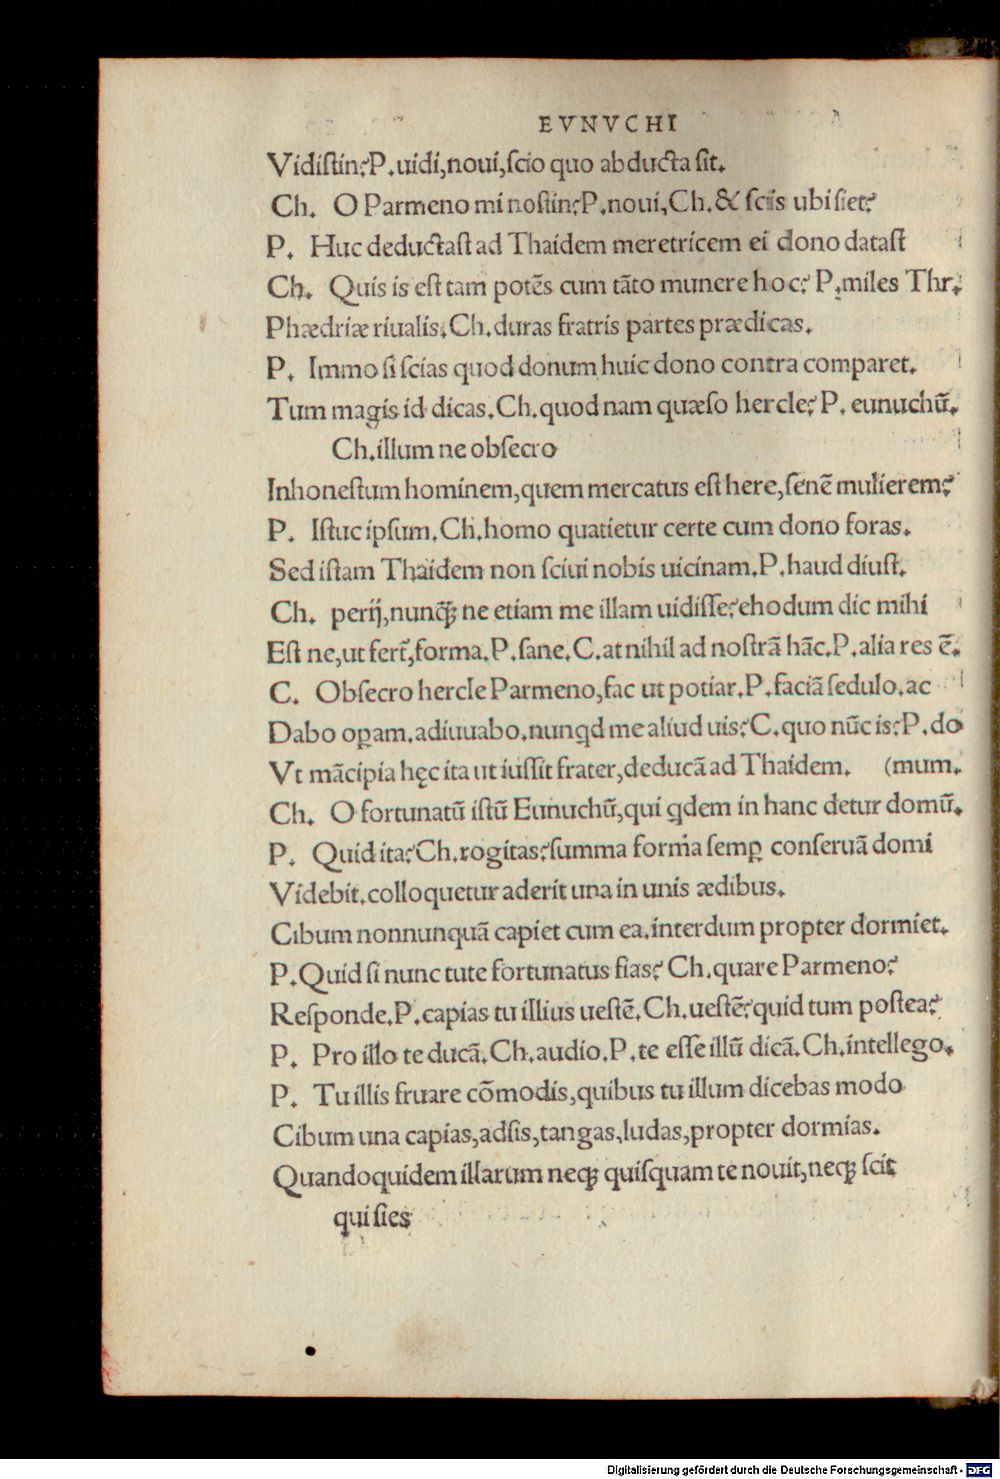 EVNVCHI
Vidistin?P.uidi,noui,scio quo abducta sit.
Ch. O Parmeno mi nostin?P.noui,Ch.& scis ubi siet?
P. Huc deductast ad Thaidem meretricem ei dono datast
Ch. Quis is est tam potēs cum tāto munere hoc? P.miles Thr.
Phædriæ riualis.Ch.duras fratris partes prædicas.
P. Immo si scias quod donum huic dono contra comparet.
Tum magis id dicas.Ch.quod nam quæso hercle? P. eunuchū.
Ch.illum ne obsecro
Inhonestum hominem,quem mercatus est here,senē mulierem?
P. Istuc ipsum.Ch.homo quatietur certe cum dono foras.
Sed istam Thaidem non sciui nobis uicinam.P.haud diust.
Ch. perij,nunq̃ꝫ ne etiam me illam uidisse?ehodum dic mihi
Est ne,ut fert̃,forma.P.sane.C.at nihil ad nostrā hāc.P.alia res ē.
C. Obsecro hercle Parmeno,fac ut potiar.P.faciā sedulo.ac
Dabo oꝑam.adiuuabo.nunqd me aliud uis?C.quo nūc is?P.do
Vt mācipia hęc ita ut iussit frater,deducā ad Thaidem. (mum.
Ch. O fortunatū istū Eunuchū,qui qdem in hanc detur domū.
P. Quid ita?Ch.rogitas?summa forma semꝑ conseruā domi
Videbit.colloquetur aderit una in unis ædibus.
Cibum nonnunquā capiet cum ea.interdum propter dormiet.
P.Quid si nunc tute fortunatus fias? Ch.quare Parmeno?
Responde.P.capias tu illius uestē.Ch.uestē?quid tum postea?
P. Pro illo te ducā.Ch.audio.P.te esse illū dicā.Ch.intellego.
P. Tu illis fruare cōmodis,quibus tu illum dicebas modo
Cibum una capias,adsis,tangas,ludas,propter dormias.
Quandoquidem illarum neqꝫ quisquam te nouit,neqꝫ scit
qui sies
Digitalisierung gefördert durch die Deutsche Forschungsgemeinschaft - DFG